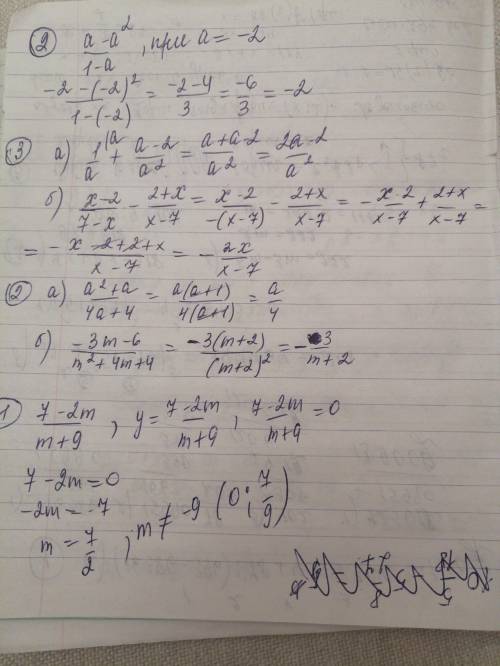 ② (a - a²)/(1-a), при a = -2
(-2 - (-2)²)/(1-(-2)) = (-2-4)/3 = -6/3 = -2
③ а) 1/a |a + (a-2)/a² = (a+a-2)/a² = (2a-2)/a²
б) (x-2)/(7-x) - (2+x)/(x-7) = (x-2)/(-(x-7)) - (2+x)/(x-7) = - (x-2)/(x-7) + (2+x)/(x-7) =
= (-x-2+2+x)/(x-7) = - 2x/(x-7)
② а) (a²+a)/(4a+4) = a(a+1)/4(a+1) = a/4
б) (-3m-6)/(m²+4m+4) = -3(m+2)/(m+2)² = - 3/(m+2)
1 (7-2m)/(m+9), y = (7-2m)/(m+9), (7-2m)/(m+9) = 0
7-2m=0
-2m=-7
m = 7/2, m ≠ -9 (0; 7/9)